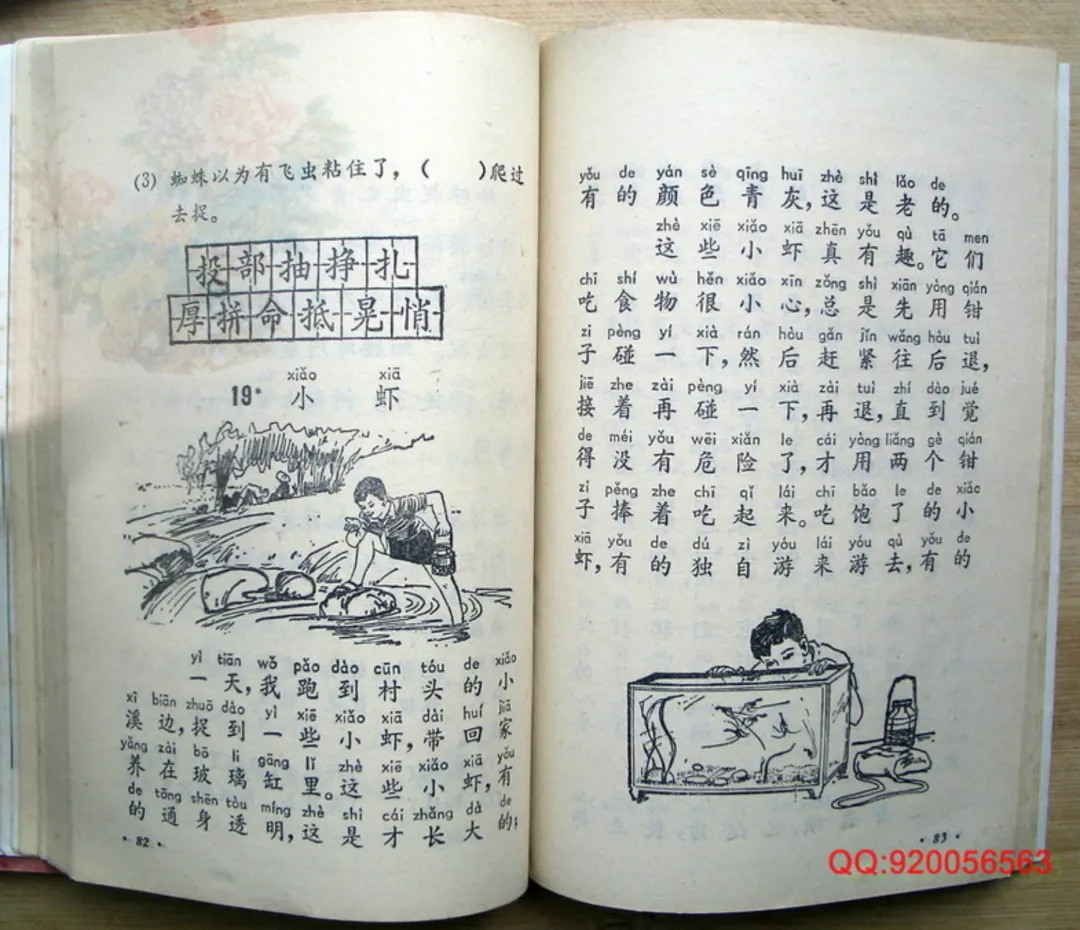 (3) 蜘蛛以为有飞虫粘住了，(　　)爬过
去捉。
投部抽挣扎
厚拼命抵晃悄
xiǎo xiā
19* 小 虾
yì tiān wǒ pǎo dào cūn tóu de xiǎo
一天，我跑到村头的小
xī biān zhuō dào yì xiē xiǎo xiā dài huí jiā
溪边，捉到一些小虾，带回家
yǎng zài bō li gāng lǐ zhè xiē xiǎo xiā yǒu
养在玻璃缸里。这些小虾，有
de tōng shēn tòu míng zhè shì cái zhǎng dà de
的通身透明，这是才长大的；
· 82 ·
yǒu de yán sè qīng huī zhè shì lǎo de
有的颜色青灰，这是老的。
zhè xiē xiǎo xiā zhēn yǒu qù tā men
这些小虾真有趣。它们
chī shí wù hěn xiǎo xīn zǒng shì xiān yòng qián
吃食物很小心，总是先用钳
zi pèng yí xià rán hòu gǎn jǐn wǎng hòu tuì
子碰一下，然后赶紧往后退，
jiē zhe zài pèng yí xià zài tuì zhí dào jué
接着再碰一下，再退，直到觉
de méi yǒu wēi xiǎn le cái yòng liǎng gè qián
得没有危险了，才用两个钳
zi pěng zhe chī qǐ lái chī bǎo le de xiǎo
子捧着吃起来。吃饱了的小
xiā yǒu de dú zì yóu lái yóu qù yǒu de
虾，有的独自游来游去，有的
· 83 ·
QQ:920056563